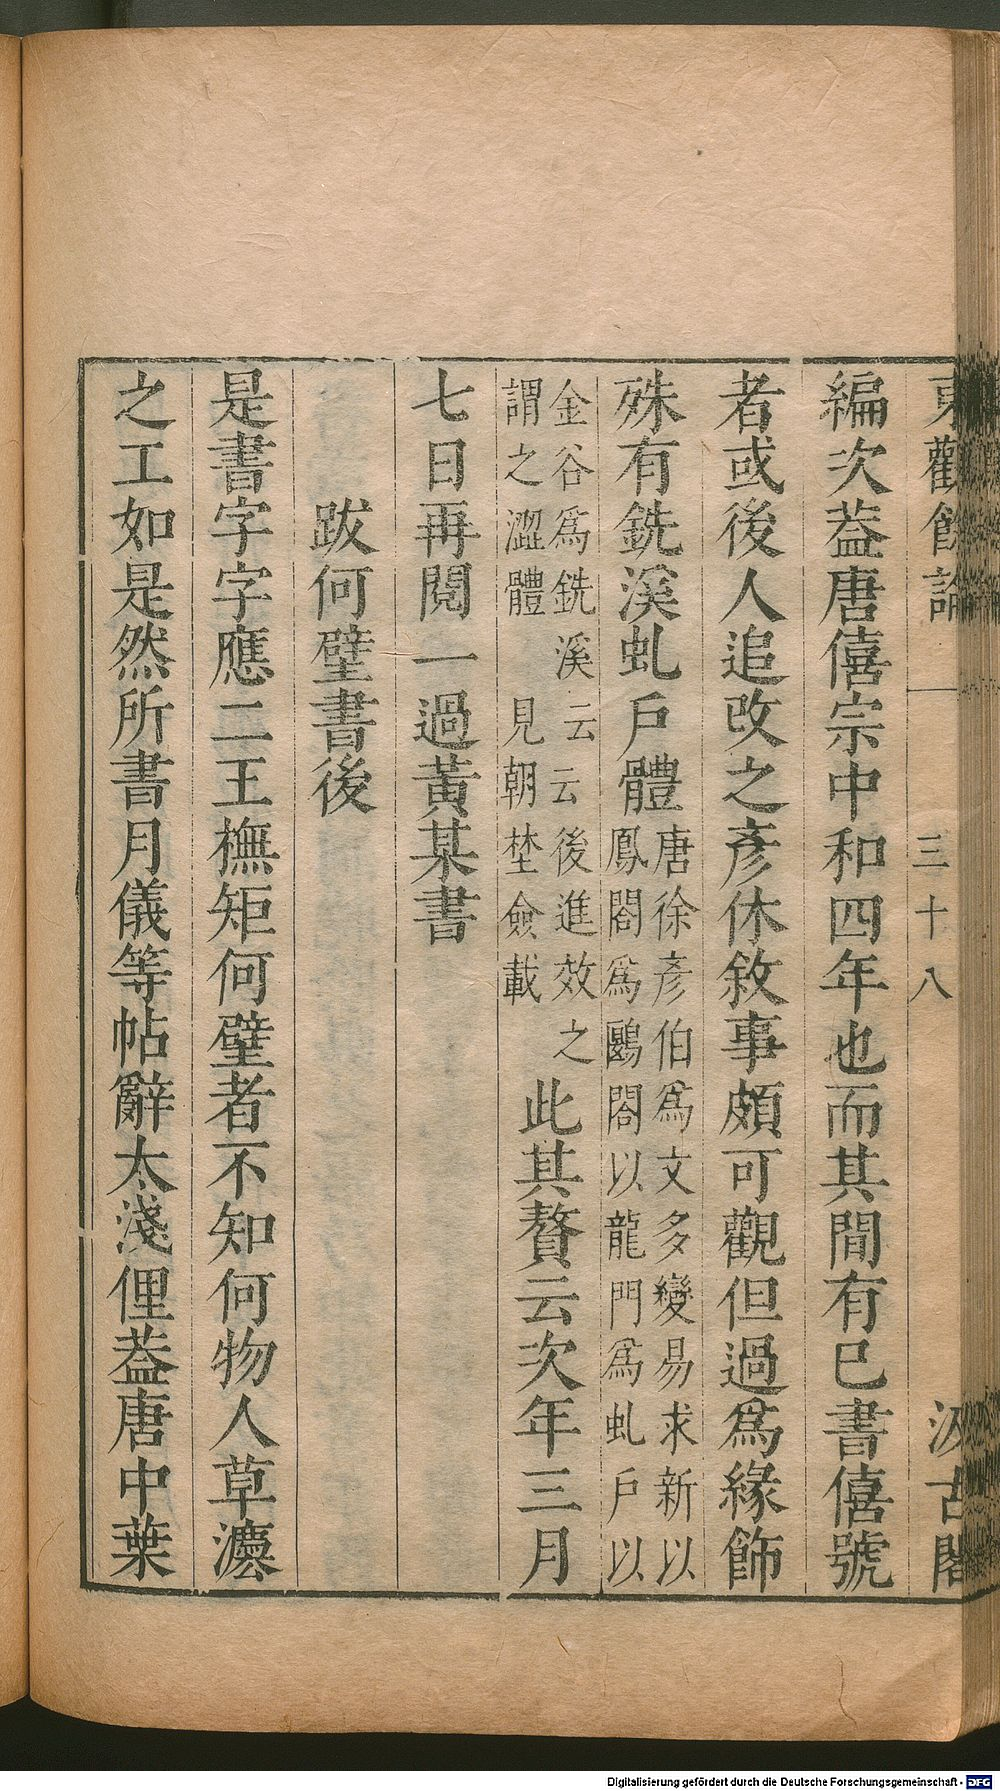 東觀餘論 三十八 汲古閣
編次葢唐僖宗中和四年也而其間有已書僖號
者或後人追改之彥休敘事頗可觀但過爲緣飾
殊有銑溪虬戶體唐徐彥伯爲文多變易求新以
鳳閣爲鷃閣以龍門爲虬戶以
金谷爲銑溪云云後進效之
謂之澀體見朝埜僉載
此其贅云次年三月
七日再閱一過黃某書
跋何壁書後
是書字字應二王橅矩何壁者不知何物人草灋
之工如是然所書月儀等帖辭太淺俚葢唐中葉
Digitalisierung gefördert durch die Deutsche Forschungsgemeinschaft - DFG